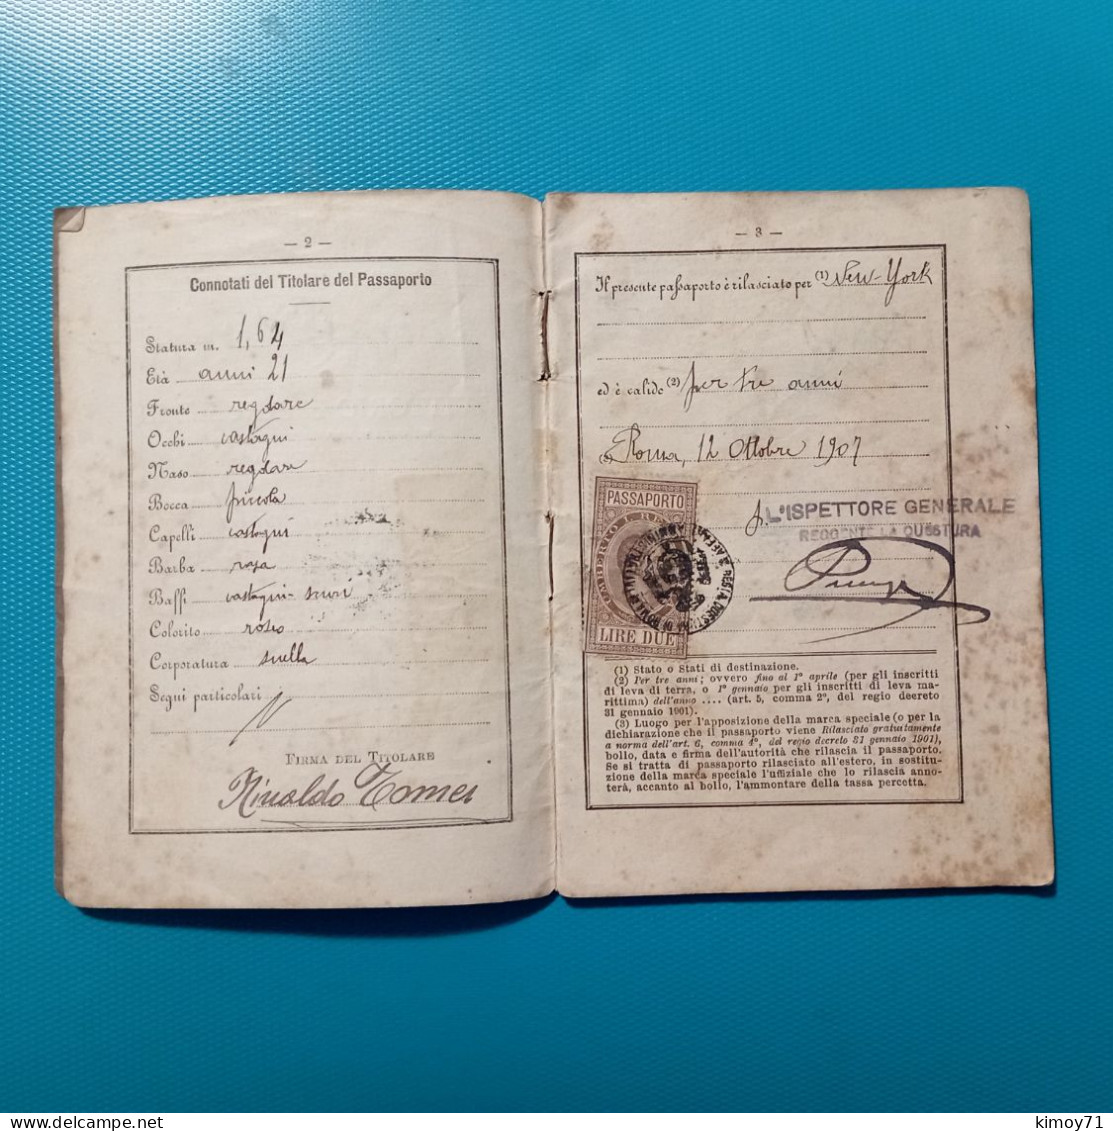 — 2 —
Connotati del Titolare del Passaporto
Statura m. 1,64
Età anni 21
Fronte regolare
Occhi castagni
Naso regolare
Bocca piccola
Capelli castagni
Barba rasa
Baffi castagni-scuri
Colorito roseo
Corporatura snella
Segni particolari //
FIRMA DEL TITOLARE
Rinaldo Tomei
— 3 —
Il presente passaporto è rilasciato per (1) New-York
ed è valido (2) per tre anni
(3) Roma, 12 Ottobre 1907
PASSAPORTO
UMBERTO I. RE
LIRE DUE
p. L'ISPETTORE GENERALE
REGGENTE LA QUESTURA
(1) Stato o Stati di destinazione.
(2) Per tre anni; ovvero fino al 1° aprile (per gli inscritti
di leva di terra, o 1° gennaio per gli inscritti di leva ma-
rittima) dell'anno .... (art. 5, comma 2°, del regio decreto
31 gennaio 1901).
(3) Luogo per l'apposizione della marca speciale (o per la
dichiarazione che il passaporto viene Rilasciato gratuitamente
a norma dell'art. 6, comma 4°, del regio decreto 31 gennaio 1901),
bollo, data e firma dell'autorità che rilascia il passaporto.
Se si tratta di passaporto rilasciato all'estero, in sostitu-
zione della marca speciale l'uffiziale che lo rilascia anno-
terà, accanto al bollo, l'ammontare della tassa percetta.
kimoy71